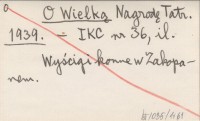 O Wielką Nagrodę Tatr.
1939. — IKC nr 36, il.
Wyścigi konne w Zakopa-
nem.